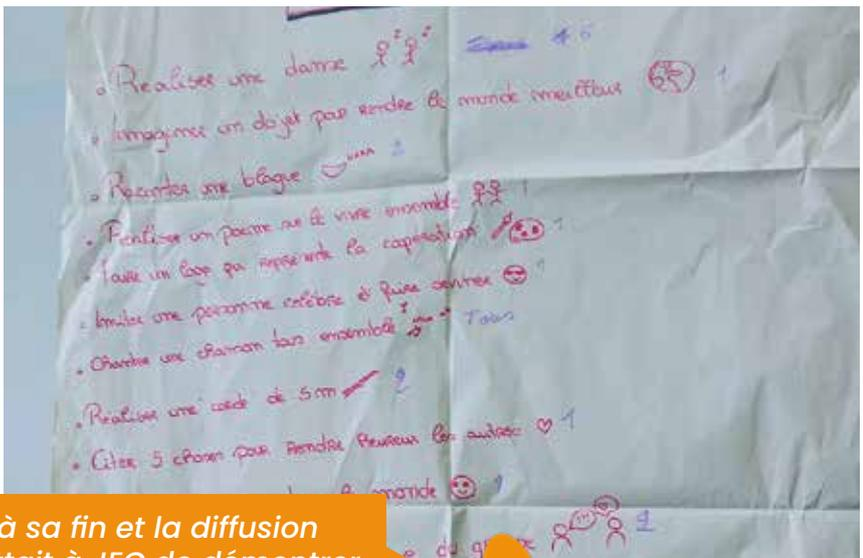 • Réaliser une danse 4 6
• Imaginer un objet pour rendre le monde meilleur 1
• Raconter une blague HAHA 2
• Réaliser un poème sur le vivre ensemble 1
• Faire un logo qui représente la coopération 1
• Imiter une personne célèbre et faire deviner 1
• Chanter une chanson tous ensemble Tous
• Réaliser une corde de 5m 2
• Citer 5 choses pour rendre heureux les autres 1
monde
du
à sa fin et la diffusion
était à JEC de démontrer